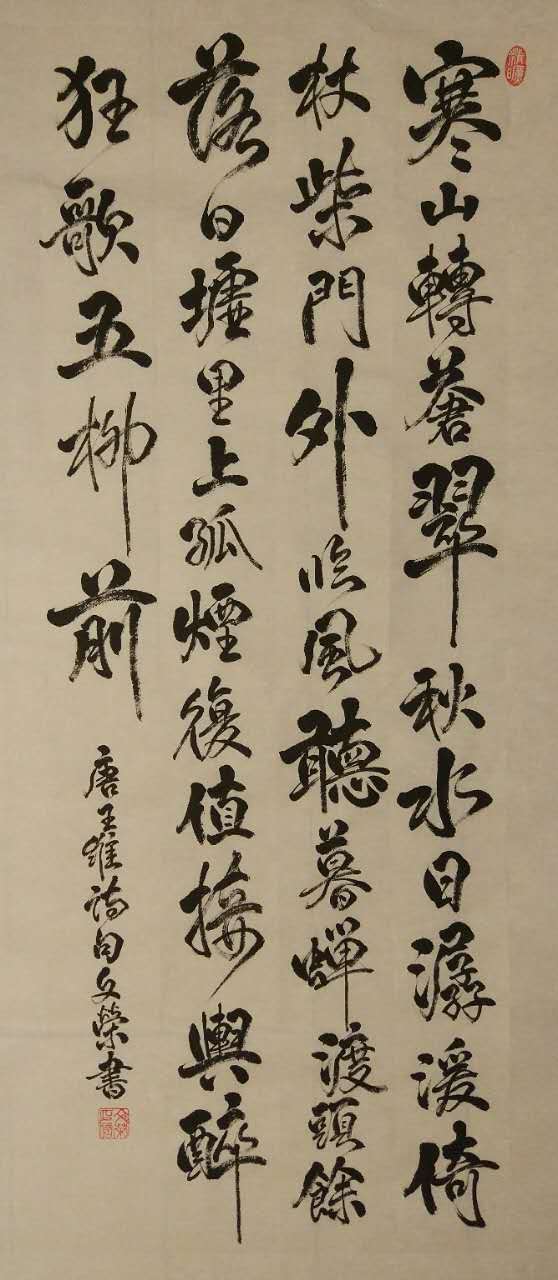 寒山轉蒼翠秋水日潺湲倚
杖柴門外临風聽暮蝉渡頭餘
落日墟里上孤煙復值接輿醉
狂歌五柳前
唐王維詩句文榮書